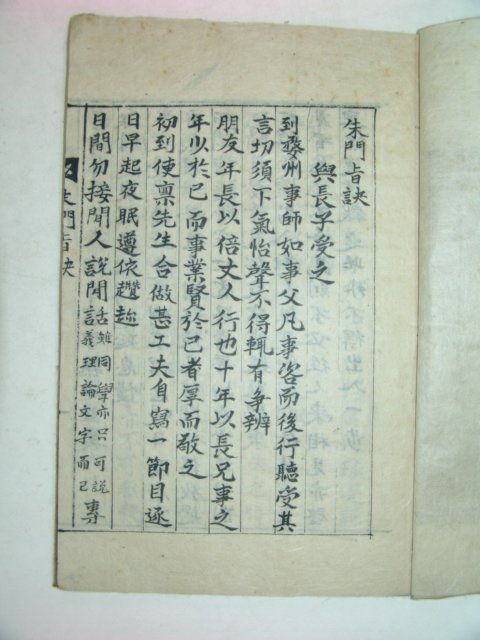 朱門旨訣
與長子受之
到婺州事師如事父凡事咨而後行聽受其
言切須下氣怡聲不得輒有争辨
朋友年長以倍丈人行也十年以長兄事之
年少於己而事業賢於己者厚而敬之
初到便禀先生合做甚工夫自寫一節目逐
日早起夜眠遵依趲趂
日間勿接閒人說閒話雖同學亦只可說義理論文字而已專
朱門旨訣